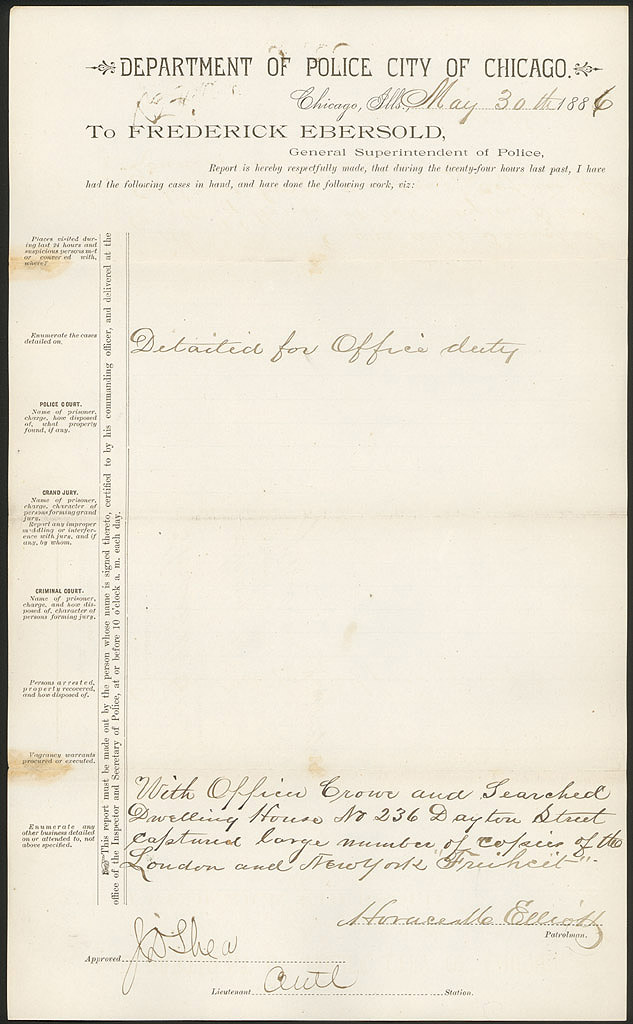 DEPARTMENT OF POLICE CITY OF CHICAGO.
Chicago, Ills., May 30th 1886
To FREDERICK EBERSOLD,
General Superintendent of Police,
Report is hereby respectfully made, that during the twenty-four hours last past, I have
had the following cases in hand, and have done the following work, viz:
Places visited dur-
ing last 24 hours and
suspicious persons met
or conversed with,
where?
Enumerate the cases
detailed on.
Detailed for Office duty
POLICE COURT.
Name of prisoner,
charge, how disposed
of, what property
found, if any.
GRAND JURY.
Name of prisoner,
charge, character of
persons forming grand
jury.
Report any improper
meddling or interfer-
ence with jury, and if
any, by whom.
CRIMINAL COURT.
Name of prisoner,
charge, and how dis-
posed of, character of
persons forming jury.
Persons arrested,
property recovered,
and how disposed of.
Vagrancy warrants
procured or executed.
Enumerate any
other business detailed
on or attended to, not
above specified.
This report must be made out by the person whose name is signed thereto, certified to by his commanding officer, and delivered at the
office of the Inspector and Secretary of Police, at or before 10 o'clock a. m. each day.
With Officer Crowe and Searched
Dwelling House No 236 Dayton Street
captured large number of copies of the
London and New York "Freiheit".
Horace M Elliott
Patrolman.
Approved J D Shea
Lieutenant Station.